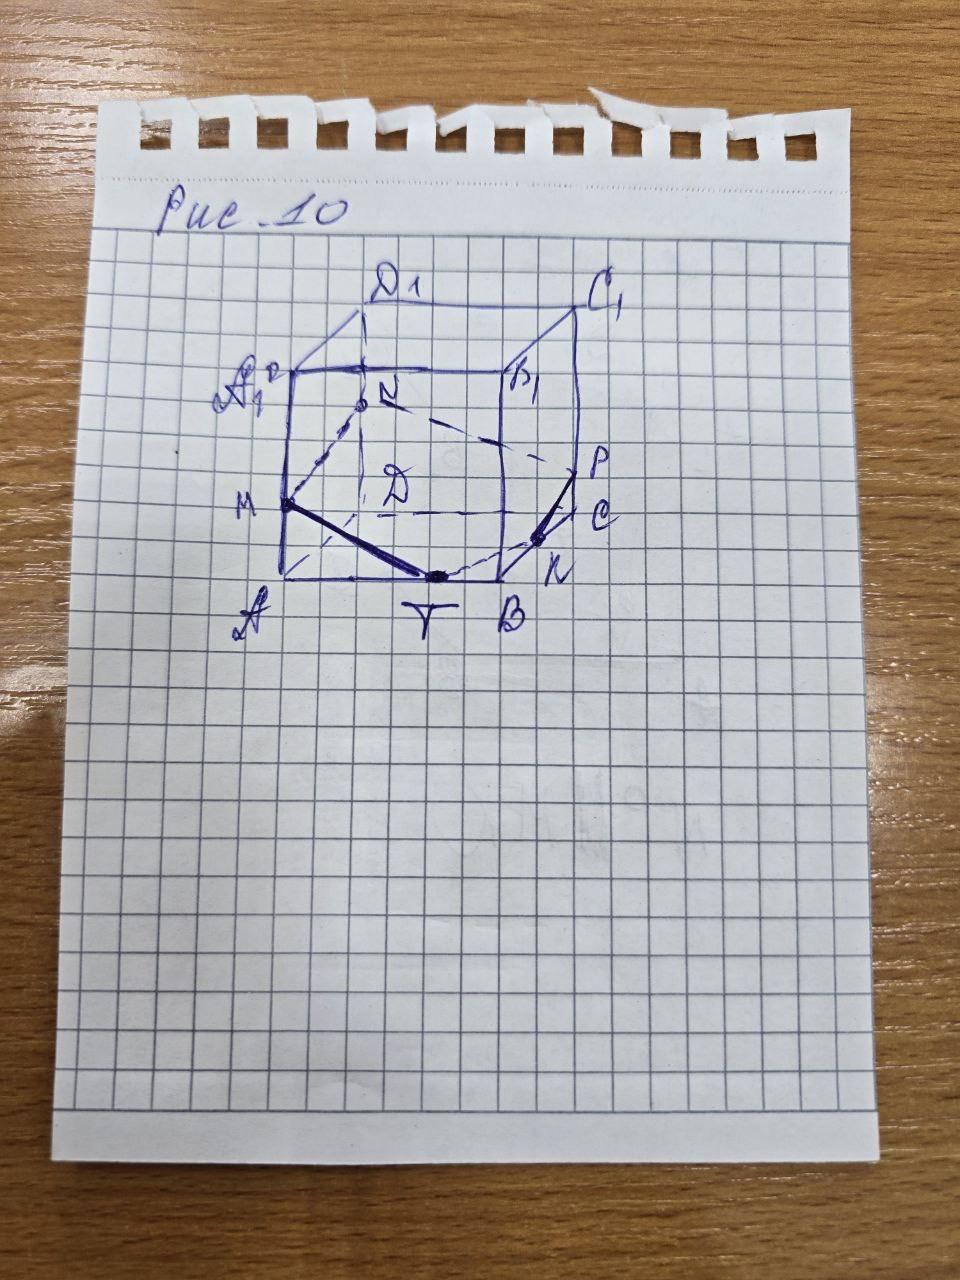 Рис. 10
D1
C1
A1
B1
N
P
M
D
C
K
A
T
B